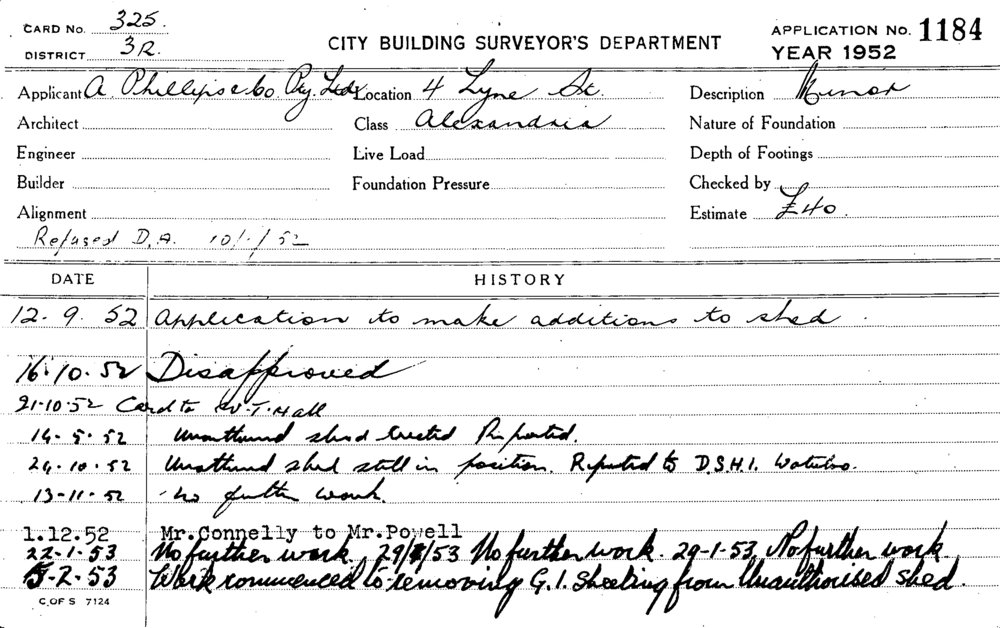 CARD No. 325.
DISTRICT 3R.
CITY BUILDING SURVEYOR'S DEPARTMENT
APPLICATION No. 1184
YEAR 1952
Applicant A. Phillips & Co Pty. Ltd. Location 4 Lyne St. Description Minor
Architect Class Alexandria Nature of Foundation
Engineer Live Load Depth of Footings
Builder Foundation Pressure Checked by
Alignment Estimate £40.
Refused D.A. 10/1/52
DATE HISTORY
12. 9. 52 Application to make additions to shed.
16.10.52 Disapproved
21.10.52 Card to W.T. Hall
14.5.52 shed erected Reported.
24.10.52 shed still in position. Reported to D.S.H.I. Waterloo.
13-11-52 No further work.
1.12.52 Mr.Connelly to Mr.Powell
22-1-53 No further work. 29/1/53 No further work. 29-1-53, No further work
5-2-53 Work commenced to removing G.I. Sheeting from Unauthorised Shed.
C.OF S 7124